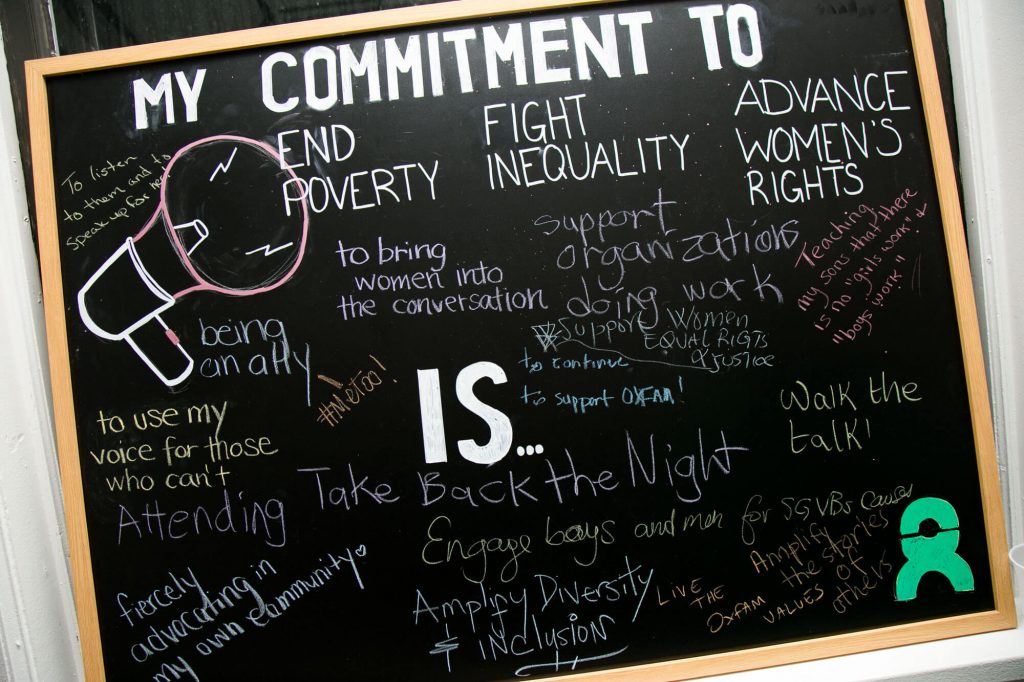 MY COMMITMENT TO
END
POVERTY
FIGHT
INEQUALITY
ADVANCE
WOMEN'S
RIGHTS
To listen
to them and to
speak up for
to bring
women into
the conversation
support
organizations
doing work
Teaching
my sons that there
is no "girls work" &
"boys work"
being
an ally
#MeToo!
Support Women
EQUAL RIGTS
& JUSTICE
to continue
to support OXFAM!
IS...
Walk the
talk!
to use my
voice for those
who can't
Attending Take Back the Night
Engage boys and men for SGVBs causes
fiercely
advocating in
my own community
Amplify Diversity
& INCLUSION
LIVE THE
OXFAM VALUES
Amplify
the stories
of
others